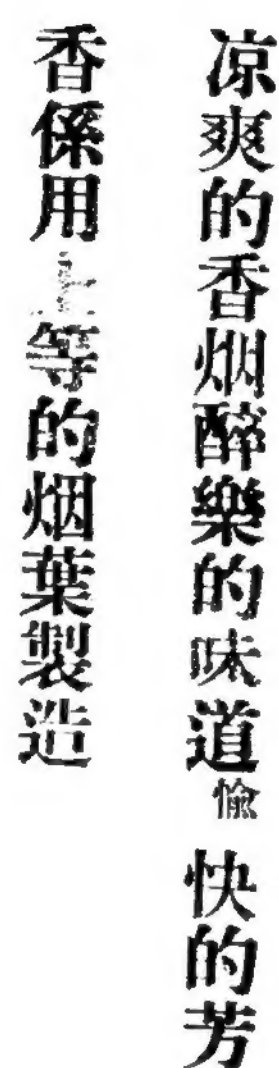 凉爽的香烟醉樂的味道愉快的芳
香係用上等的烟葉製造